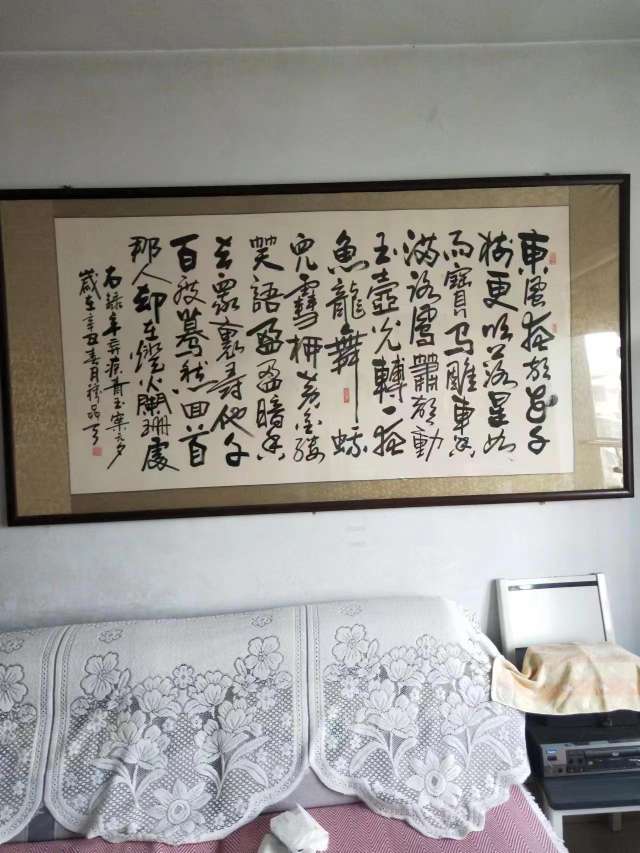 東風夜放花千
樹更吹落星如
雨寶马雕車香
满路鳳簫声動
玉壺光轉一夜
魚龍舞蛾
兒雪柳黄金缕
笑語盈盈暗香
去衆裏尋他千
百度驀然回首
那人却在燈火闌珊處
右録辛弃疾青玉案元夕
歲在辛丑春月